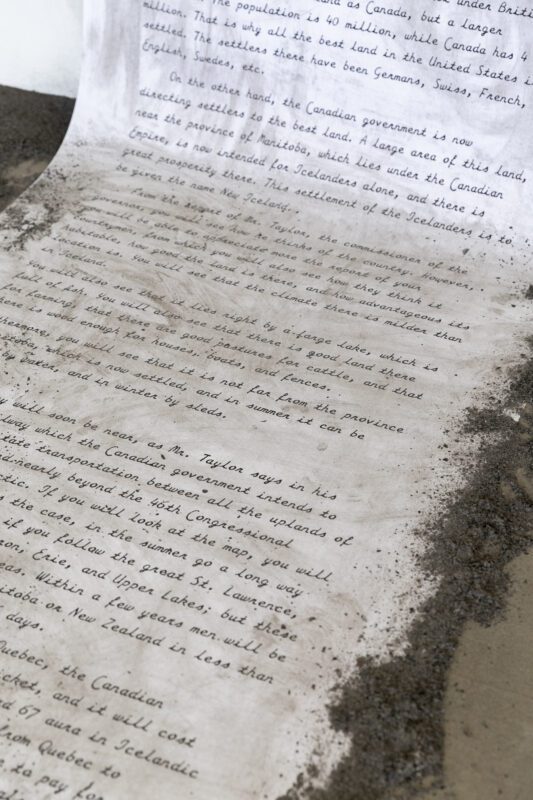 under Briti
as Canada, but a larger
The population is 40 million, while Canada has 4
million. That is why all the best land in the United States is
settled. The settlers there have been Germans, Swiss, French,
English, Swedes, etc.
On the other hand, the Canadian government is now
directing settlers to the best land. A large area of this land,
near the province of Manitoba, which lies under the Canadian
Empire, is now intended for Icelanders alone, and there is
great prosperity there. This settlement of the Icelanders is to
be given the name New Iceland.
From the report of Mr. Taylor, the commissioner of the
governor, you will see how he thinks of the country. However,
you will be able to appreciate more the report of your
countrymen, from which you will also see how they think it
habitable, how good the land is there, and how advantageous its
location is. You will see that the climate there is milder than
Iceland.
You will also see that it lies right by a large lake, which is
full of fish. You will also see that there is good land there
for farming, that there are good pastures for cattle, and that
there is wood enough for houses, boats, and fences.
thermore, you will see that it is not far from the province
itoba, which is now settled, and in summer it can be
by water, and in winter by sleds.
will soon be near, as Mr. Taylor says in his
lway which the Canadian government intends to
itate transportation between all the uplands of
nearly beyond the 46th Congressional
tic. If you will look at the map, you will
s the case, in the summer go a long way
if you follow the great St. Lawrence,
ron, Erie, and Upper Lakes; but these
eas. Within a few years men will be
itoba or New Zealand in less than
days.
Quebec, the Canadian
icket, and it will cost
d 67 aura in Icelandic
from Quebec to
to pay for